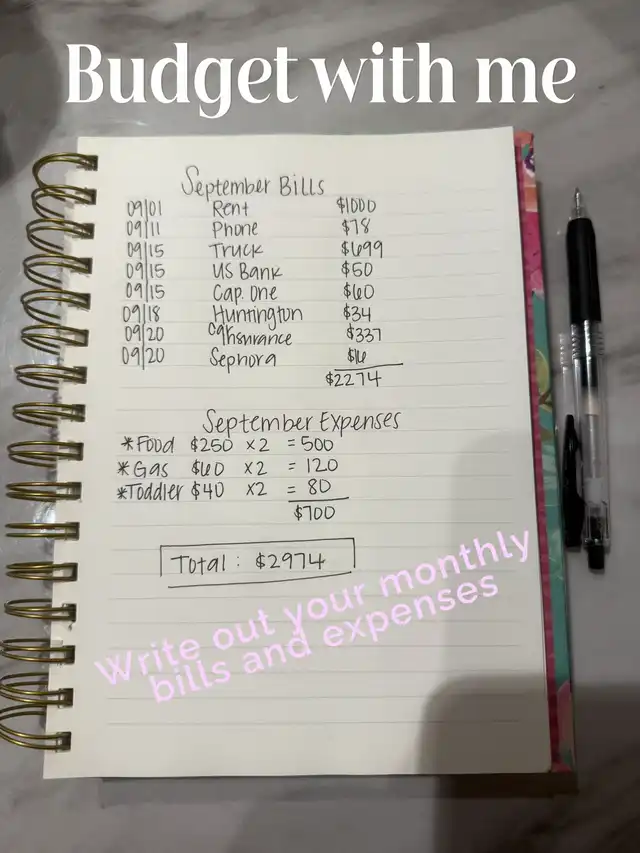 Budget with me
September Bills
09/01 Rent $1000
09/11 Phone $78
09/15 Truck $699
09/15 US Bank $50
09/15 Cap. One $60
09/18 Huntington $34
09/20 Car Insurance $337
09/20 Sephora $16
$2274
September Expenses
*Food $250 x2 = 500
*Gas $60 x2 = 120
*Toddler $40 x2 = 80
$700
Total : $2974
Write out your monthly
bills and expenses